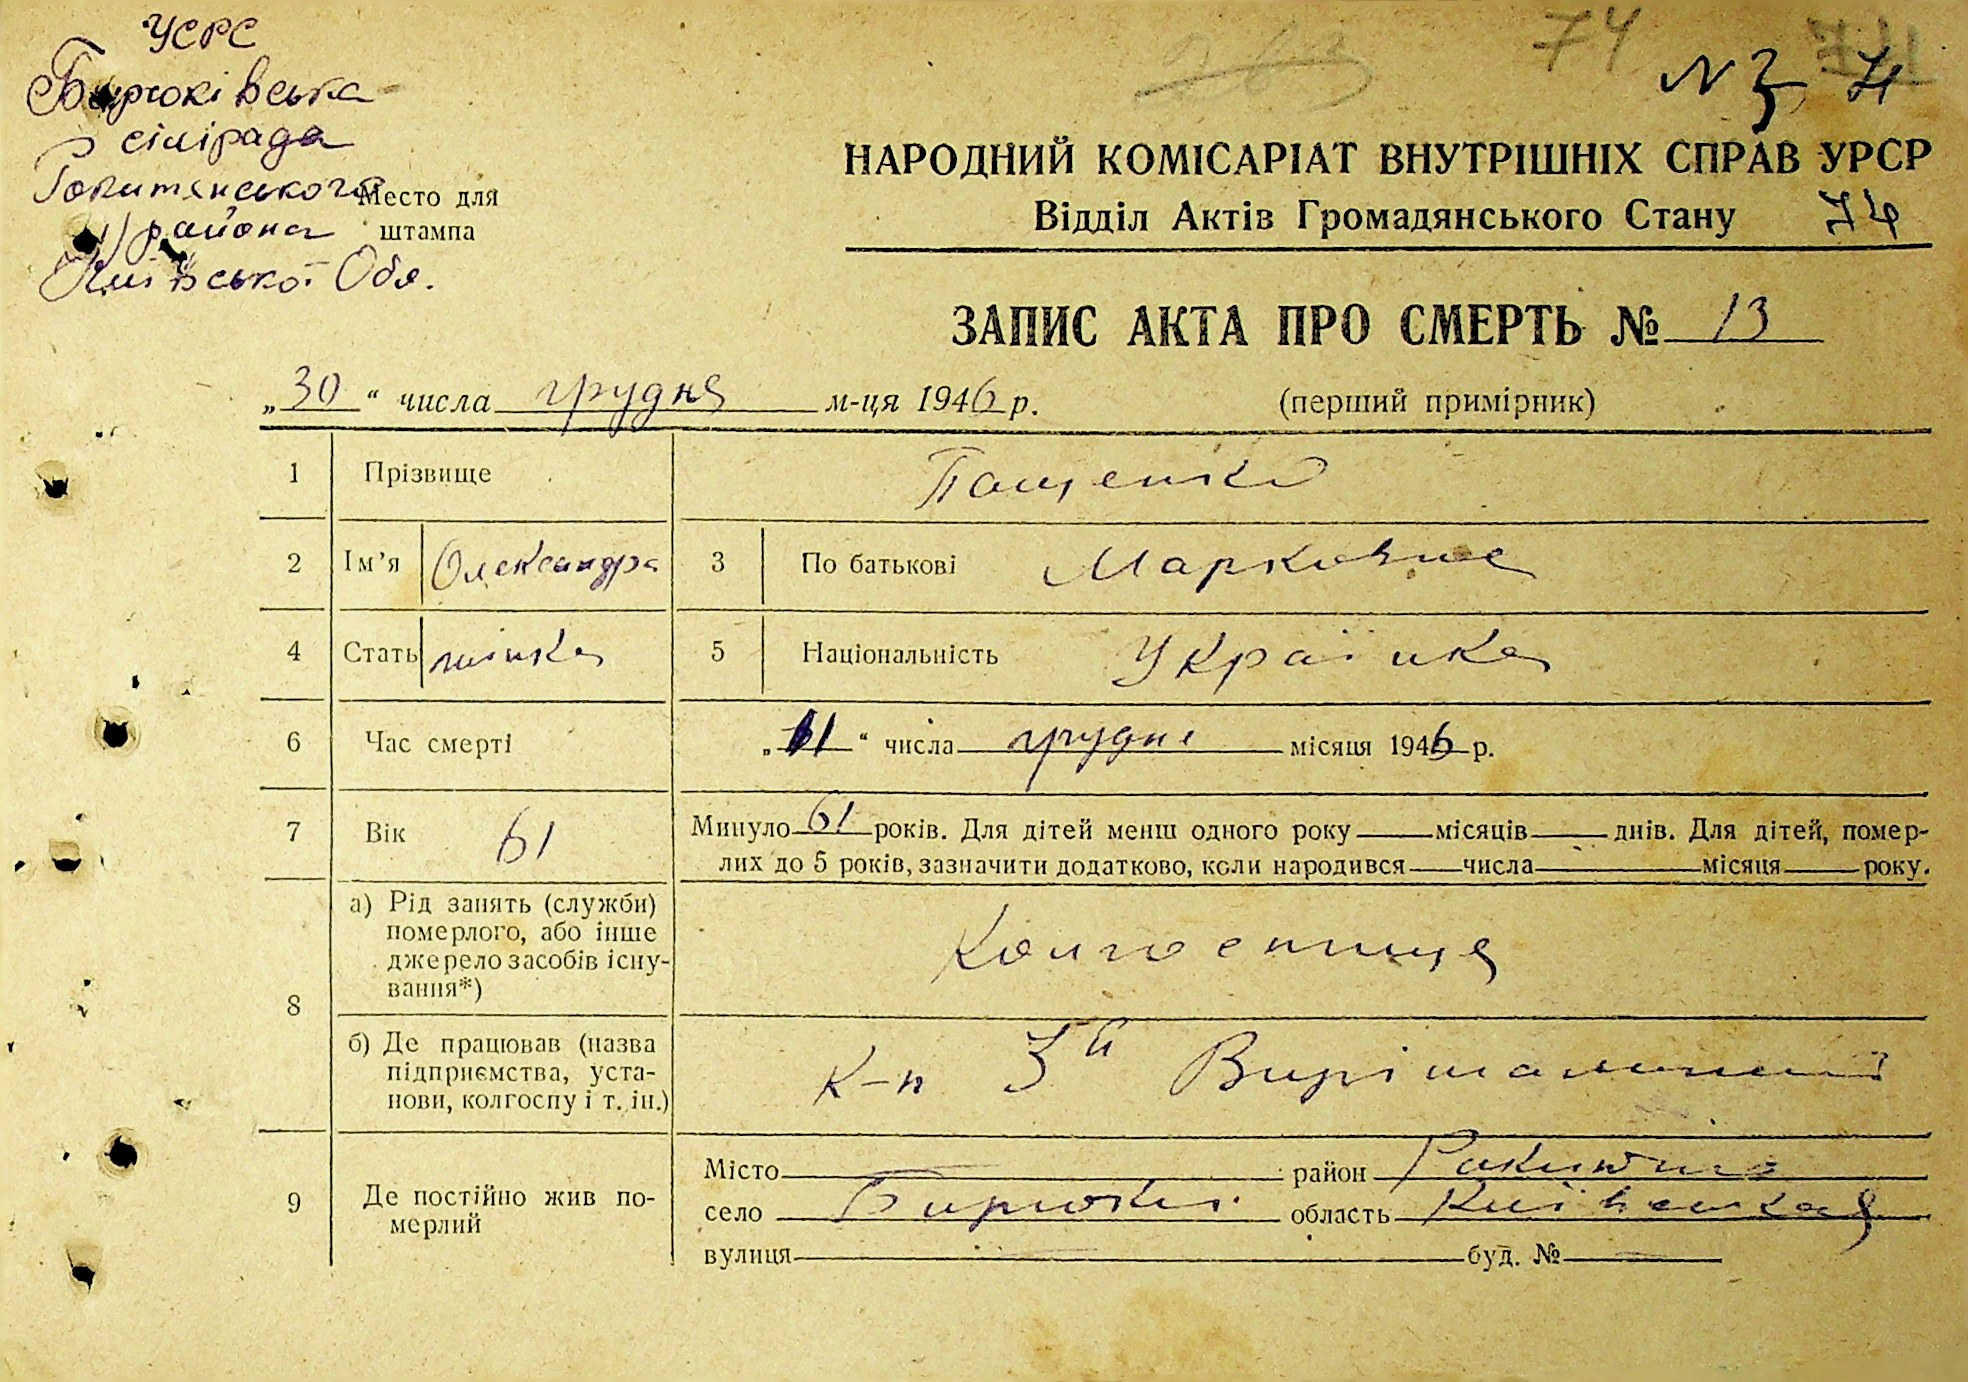 УСРС
Бирюківська
сілірада
Рокитянського
района
Київської Обл.
Место для
штампа
263
74
N 3 74
НАРОДНИЙ КОМІСАРІАТ ВНУТРІШНІХ СПРАВ УРСР
Відділ Актів Громадянського Стану 74
ЗАПИС АКТА ПРО СМЕРТЬ № 13
„30“ числа грудня м-ця 1946 р. (перший примірник)
1 Прізвище Пащенко
2 Ім'я Олександра 3 По батькові Марковна
4 Стать жінка 5 Національність Українка
6 Час смерті „11“ числа грудня місяця 1946 р.
7 Вік 61 Минуло 61 років. Для дітей менш одного року місяців днів. Для дітей, помер-
лих до 5 років, зазначити додатково, коли народився числа місяця року.
8 а) Рід занять (служби)
померлого, або інше
джерело засобів існу-
вання*)
Колгоспниця
б) Де працював (назва
підприємства, уста-
нови, колгоспу і т. ін.)
к-п 3й Вирішальний
9 Де постійно жив по-
мерлий
Місто район Ракитно
село Бирюки область Київская
вулиця буд. №